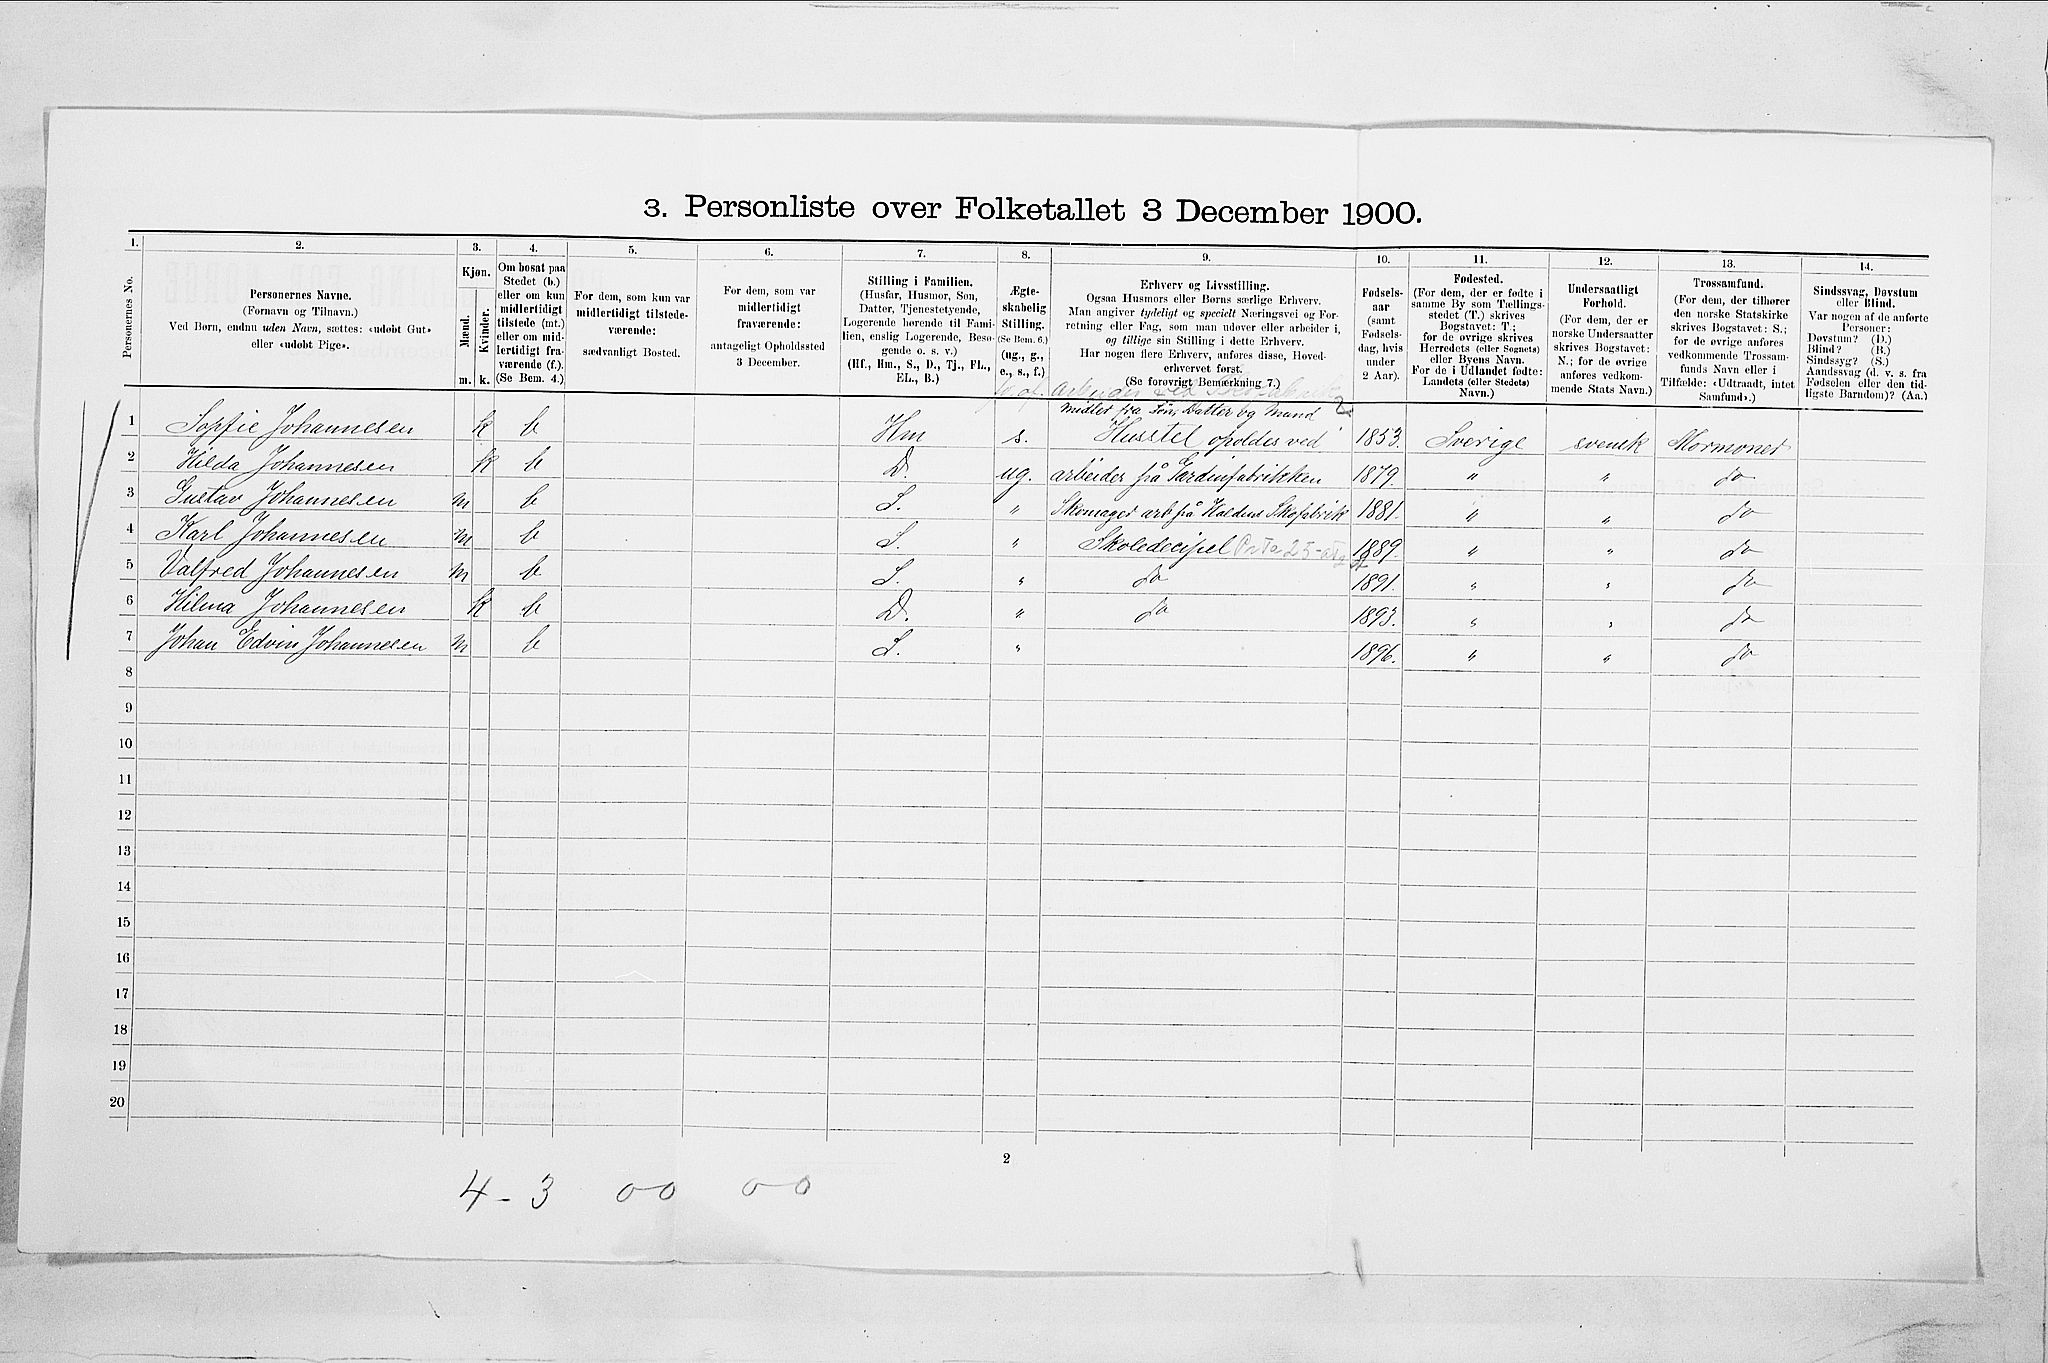 3. Personliste over Folketallet 3 December 1900.
1.
Personernes No.
2.
Personernes Navne.
(Fornavn og Tilnavn.)
Ved Børn, endnu uden Navn, sættes: «udøbt Gut»
eller «udøbt Pige».
3.
Kjøn.
Mænd.
Kvinder.
m.
k.
4.
Om bosat paa
Stedet (b.)
eller om kun
midlertidigt
tilstede (mt.)
eller om mid-
lertidigt fra-
værende (f.).
(Se Bem. 4.)
5.
For dem, som kun var
midlertidigt tilstede-
værende:
sædvanligt Bosted.
6.
For dem, som var
midlertidigt
fraværende:
antageligt Opholdssted
3 December.
7.
Stilling i Familien.
(Husfar, Husmor, Søn,
Datter, Tjenestetyende,
Logerende hørende til Fami-
lien, enslig Logerende, Besø-
gende o. s. v.)
(Hf., Hm., S., D., Tj., FL.,
EL., B.)
8.
Ægte-
skabelig
Stilling.
(Se Bem. 6.)
(ug., g.,
e., s., f.)
9.
Erhverv og Livsstilling.
Ogsaa Husmors eller Børns særlige Erhverv.
Man angiver tydeligt og specielt Næringsvei og For-
retning eller Fag, som man udøver eller arbeider i,
og tillige sin Stilling i dette Erhverv.
Har nogen flere Erhverv, anføres disse, Hoved-
erhvervet først.
(Se forøvrigt Bemærkning 7.)
10.
Fødsels-
aar
(samt
Fødsels-
dag, hvis
under
2 Aar).
11.
Fødested.
(For dem, der er fødte i
samme By som Tællings-
stedet (T.) skrives
Bogstavet: T.;
for de øvrige skrives
Herredets (eller Sognets)
eller Byens Navn.
For de i Udlandet fødte:
Landets (eller Stedets)
Navn.)
12.
Undersaatligt
Forhold.
(For dem, der er
norske Undersaatter
skrives Bogstavet:
N.; for de øvrige
anføres vedkom-
mende Stats Navn.)
13.
Trossamfund.
(For dem, der tilhører
den norske Statskirke
skrives Bogstavet: S.;
for de øvrige anføres
vedkommende Trossam-
funds Navn eller i
Tilfælde: «Udtraadt, intet
Samfund».)
14.
Sindssvag, Døvstum
eller Blind.
Var nogen af de anførte
Personer:
Døvstum? (D.)
Blind? (B.)
Sindssyg? (S.)
Aandssvag (d. v. s. fra
Fødselen eller den tid-
ligste Barndom)? (Aa.)
midlet fra Søn, Datter og Mand
1 Sopfie Johannesen k b Hm s. Husstel opoldes ved 1853. Sverige svensk Mormoner
2 Hilda Johannesen k b D. ug. arbeider på Gardinfabrikken 1879. " " do
3 Gustav Johannesen m b S. " Skomager arb på Haldens Skofabrik 1881. " " do
4 Karl Johannesen m b S. " Skoledecipel 1889. " " do
5 Valfred Johannesen m b S. " do 1891. " " do
6 Hilma Johannesen k b D. " do 1893. " " do
7 Johan Edvin Johannesen m b S. " 1896. " " do
8
9
10
11
12
13
14
15
16
17
18
19
20
2
4 - 3 00 00